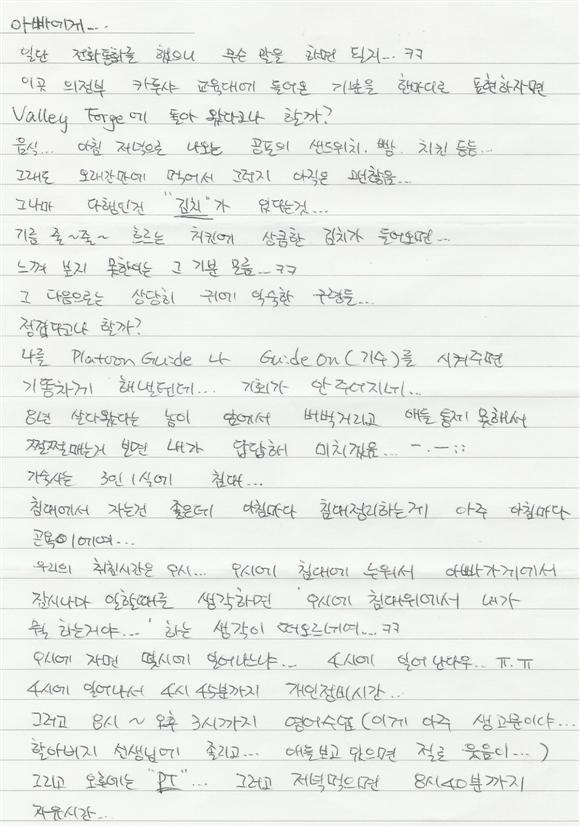 아빠에게...
일단 전화통화를 했으니 무슨 말을 하면 되지... ㅋㅋ
이곳 의정부 카투샤 교육대에 들어온 기분을 한마디로 표현하자면
Valley Forge에 돌아 왔다고나 할까?
음식... 아침 저녁으로 나오는 곧들의 샌드위치. 빵. 치킨 등등...
그래도 오래간만에 먹어서 그런지 아직은 괜찮음...
그나마 다행인건 "김치"가 있다는것...
기름 줄~줄~ 흐르는 치킨에 상큼한 김치가 들어오면...
느껴 보지 못하며는 그 기분 모름... ㅋㅋ
그 다음으로는 상당히 귀에 익숙한 구령들...
정겹다고나 할까?
나를 Platoon Guide 나 Guide On (기수)를 시켜주면
기똥차게 해낼텐데... 기회가 안 주어지네...
8년 살다왔다는 놈이 앞에서 버벅거리고 애들 통제 못해서
쩔쩔매는거 보면 내가 답답해 미치겠음... -.-;;
기숙사는 3인 1실에 침대...
침대에서 자는건 좋은데 아침마다 침대정리하는게 아주 아침마다
곤욕이에여...
우리의 취침시간은 9시... 9시에 침대에 누워서 아빠가게에서
잠시나마 일할때를 생각하면 '9시에 침대위에서 내가
뭐 하는거야...' 하는 생각이 떠오르네여... ㅋㅋ
9시에 자면 몇시에 일어나느냐... 4시에 일어난다우.. ㅠ.ㅠ
4시에 일어나서 4시 45분까지 개인정비시간...
그리고 8시 ~ 오후 3시까지 영어수업 (이게 아주 생고문이야...
할아버지 선생님에 졸리고... 애들보고 있으면 절로 웃음이...)
그리고 오후에는 "PT"... 그리고 저녁먹으면 8시40분까지
자유시간...